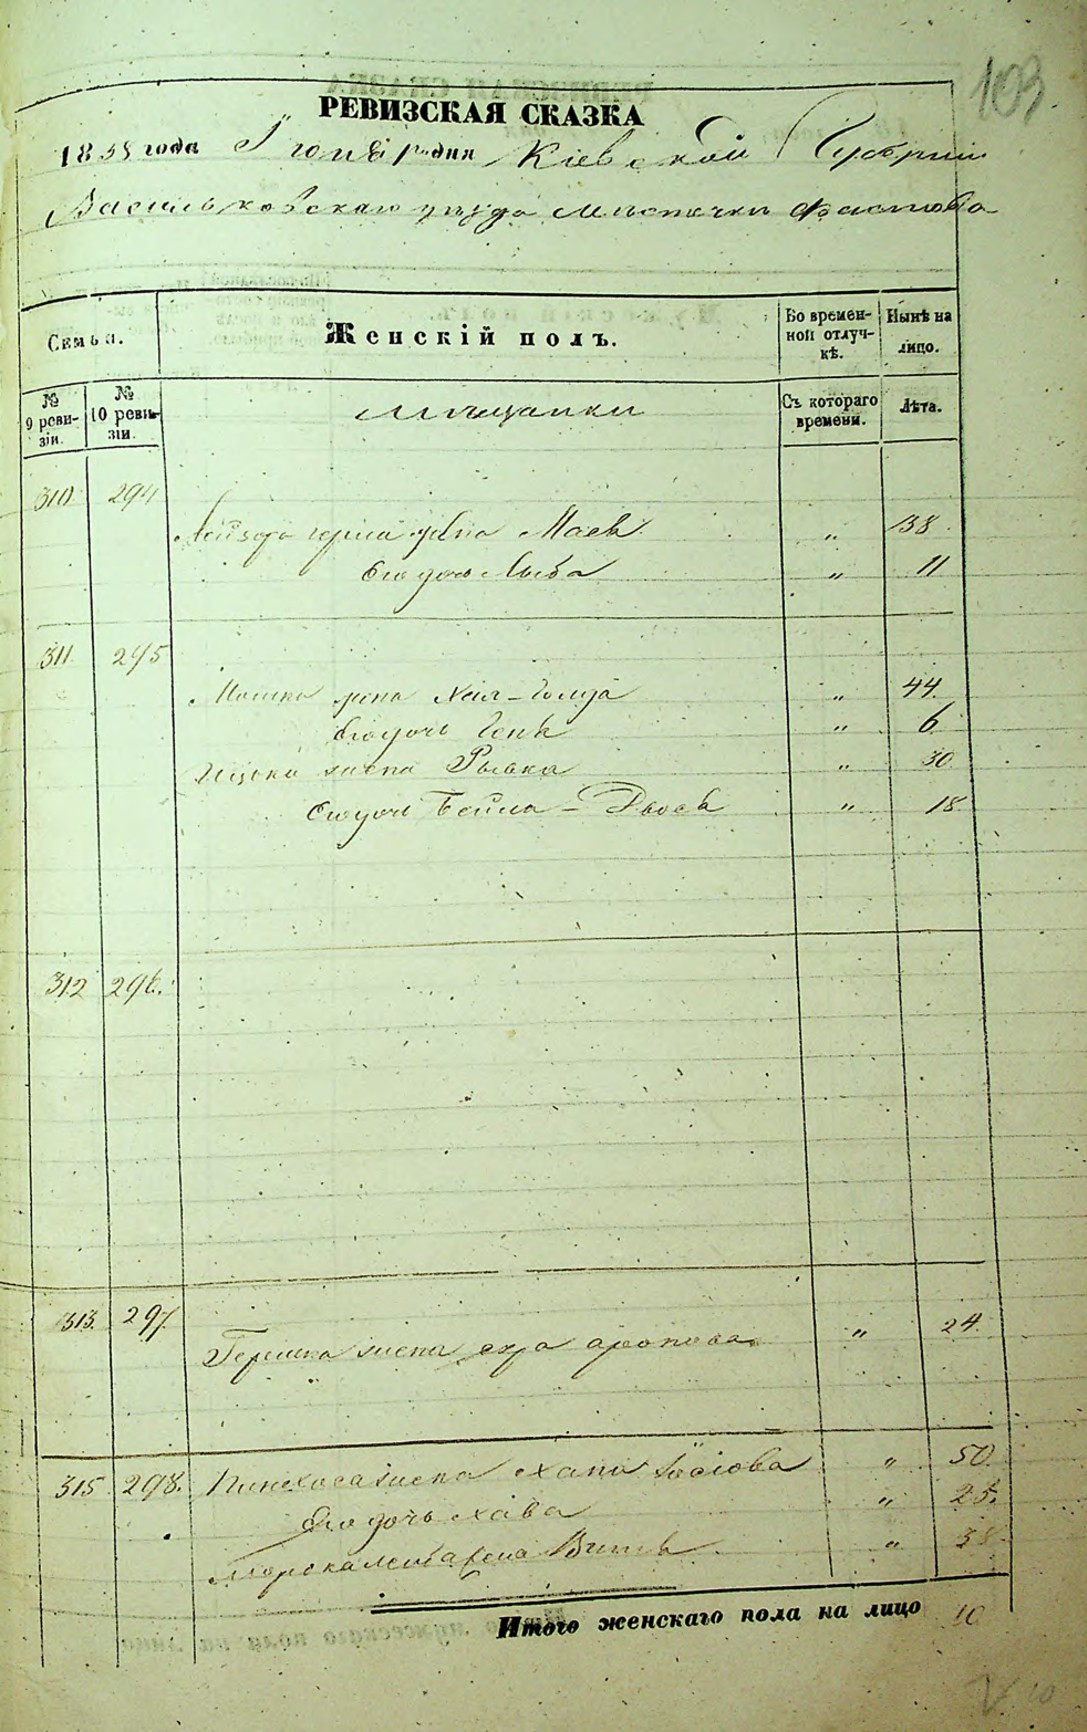 103
РЕВИЗСКАЯ СКАЗКА
1858 года Іюня 1 дня Кіевской Губерніи
Васильковскаго уезда местечка Фастова
Семья.
Женскій полъ.
Во времен-
ной отлуч-
кѣ.
Нынѣ на
лицо.
№
9 реви-
зіи.
№
10 реви-
зіи.
Мещанки
Съ котораго
времени.
Лѣта.
310 294
Лейзора жена " 38
его дочь Лыба " 11
311 295
жена " 44
его дочь Геня " 6
Ицька жена Рывка " 30
его дочь Бейла - Двося " 18
312 296.
313. 297.
Гершка жена " 24.
315 298. Пинхоса жена Хана " 50
его дочь Хава " 25.
жена " 38
Итого женскаго пола на лицо 10
V 10